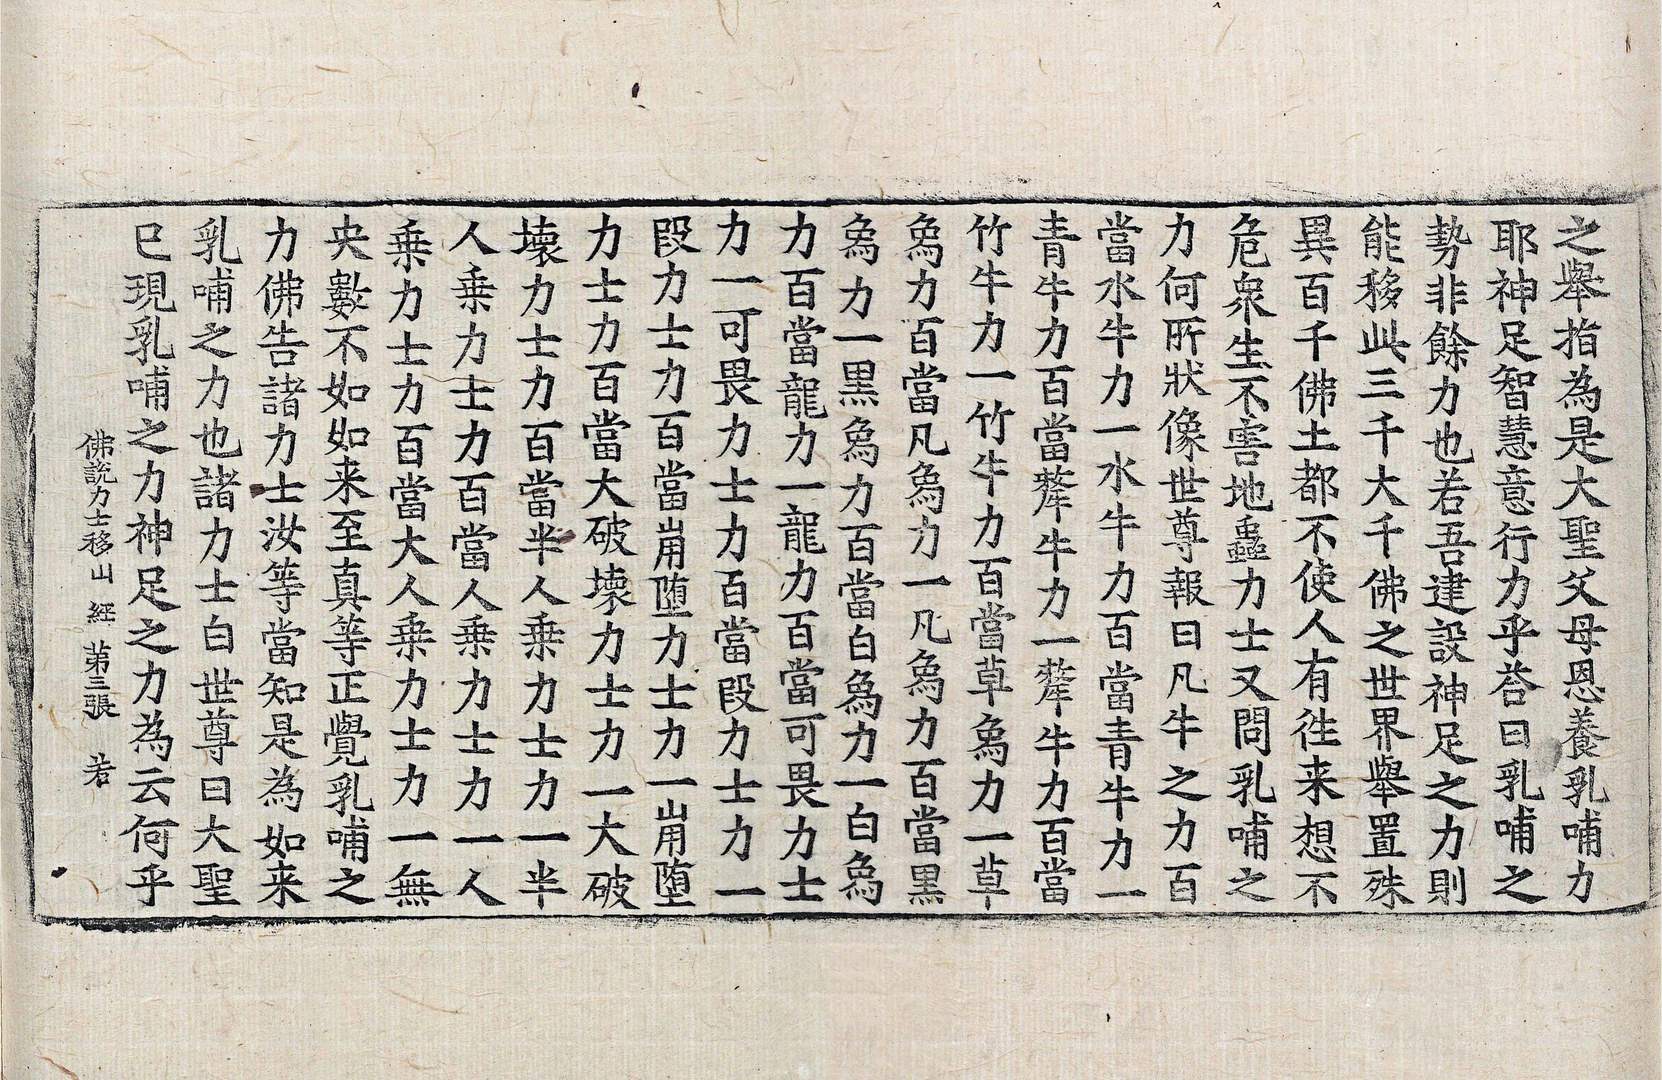 之舉指為是大聖父母恩養乳哺力
耶神足智慧意行力乎荅曰乳哺之
勢非餘力也若吾建設神足之力則
能移此三千大千佛之世界舉置殊
異百千佛土都不使人有往来想不
危衆生不害地蟲力士又問乳哺之
力何所狀像世尊報曰凡牛之力百
當水牛力一水牛力百當青牛力一
青牛力百當犛牛力一犛牛力百當
竹牛力一竹牛力百當草象力一草
象力百當凡象力一凡象力百當黑
象力一黒象力百當白象力一白象
力百當龍力一龍力百當可畏力士
力一可畏力士力百當段力士力一
段力士力百當崩墮力士力一崩墮
力士力百當大破壊力士力一大破
壊力士力百當半人乗力士力一半
人乗力士力百當人乗力士力一人
乗力士力百當大人乗力士力一無
央數不如如来至真等正覺乳哺之
力佛告諸力士汝等當知是為如来
乳哺之力也諸力士白世尊曰大聖
已現乳哺之力神足之力為云何乎
佛說力士移山經 第三張 若